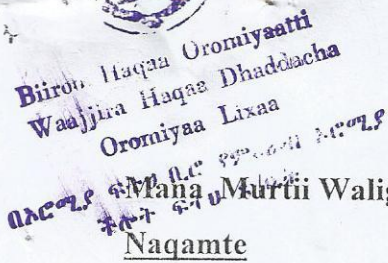 Biiroo Haqaa Oromiyaatti
Waajjira Haqaa Dhaddacha
Oromiyaa Lixaa
በኦሮሚያ ፍትህ ቢሮ
Mana Murtii
Naqamte